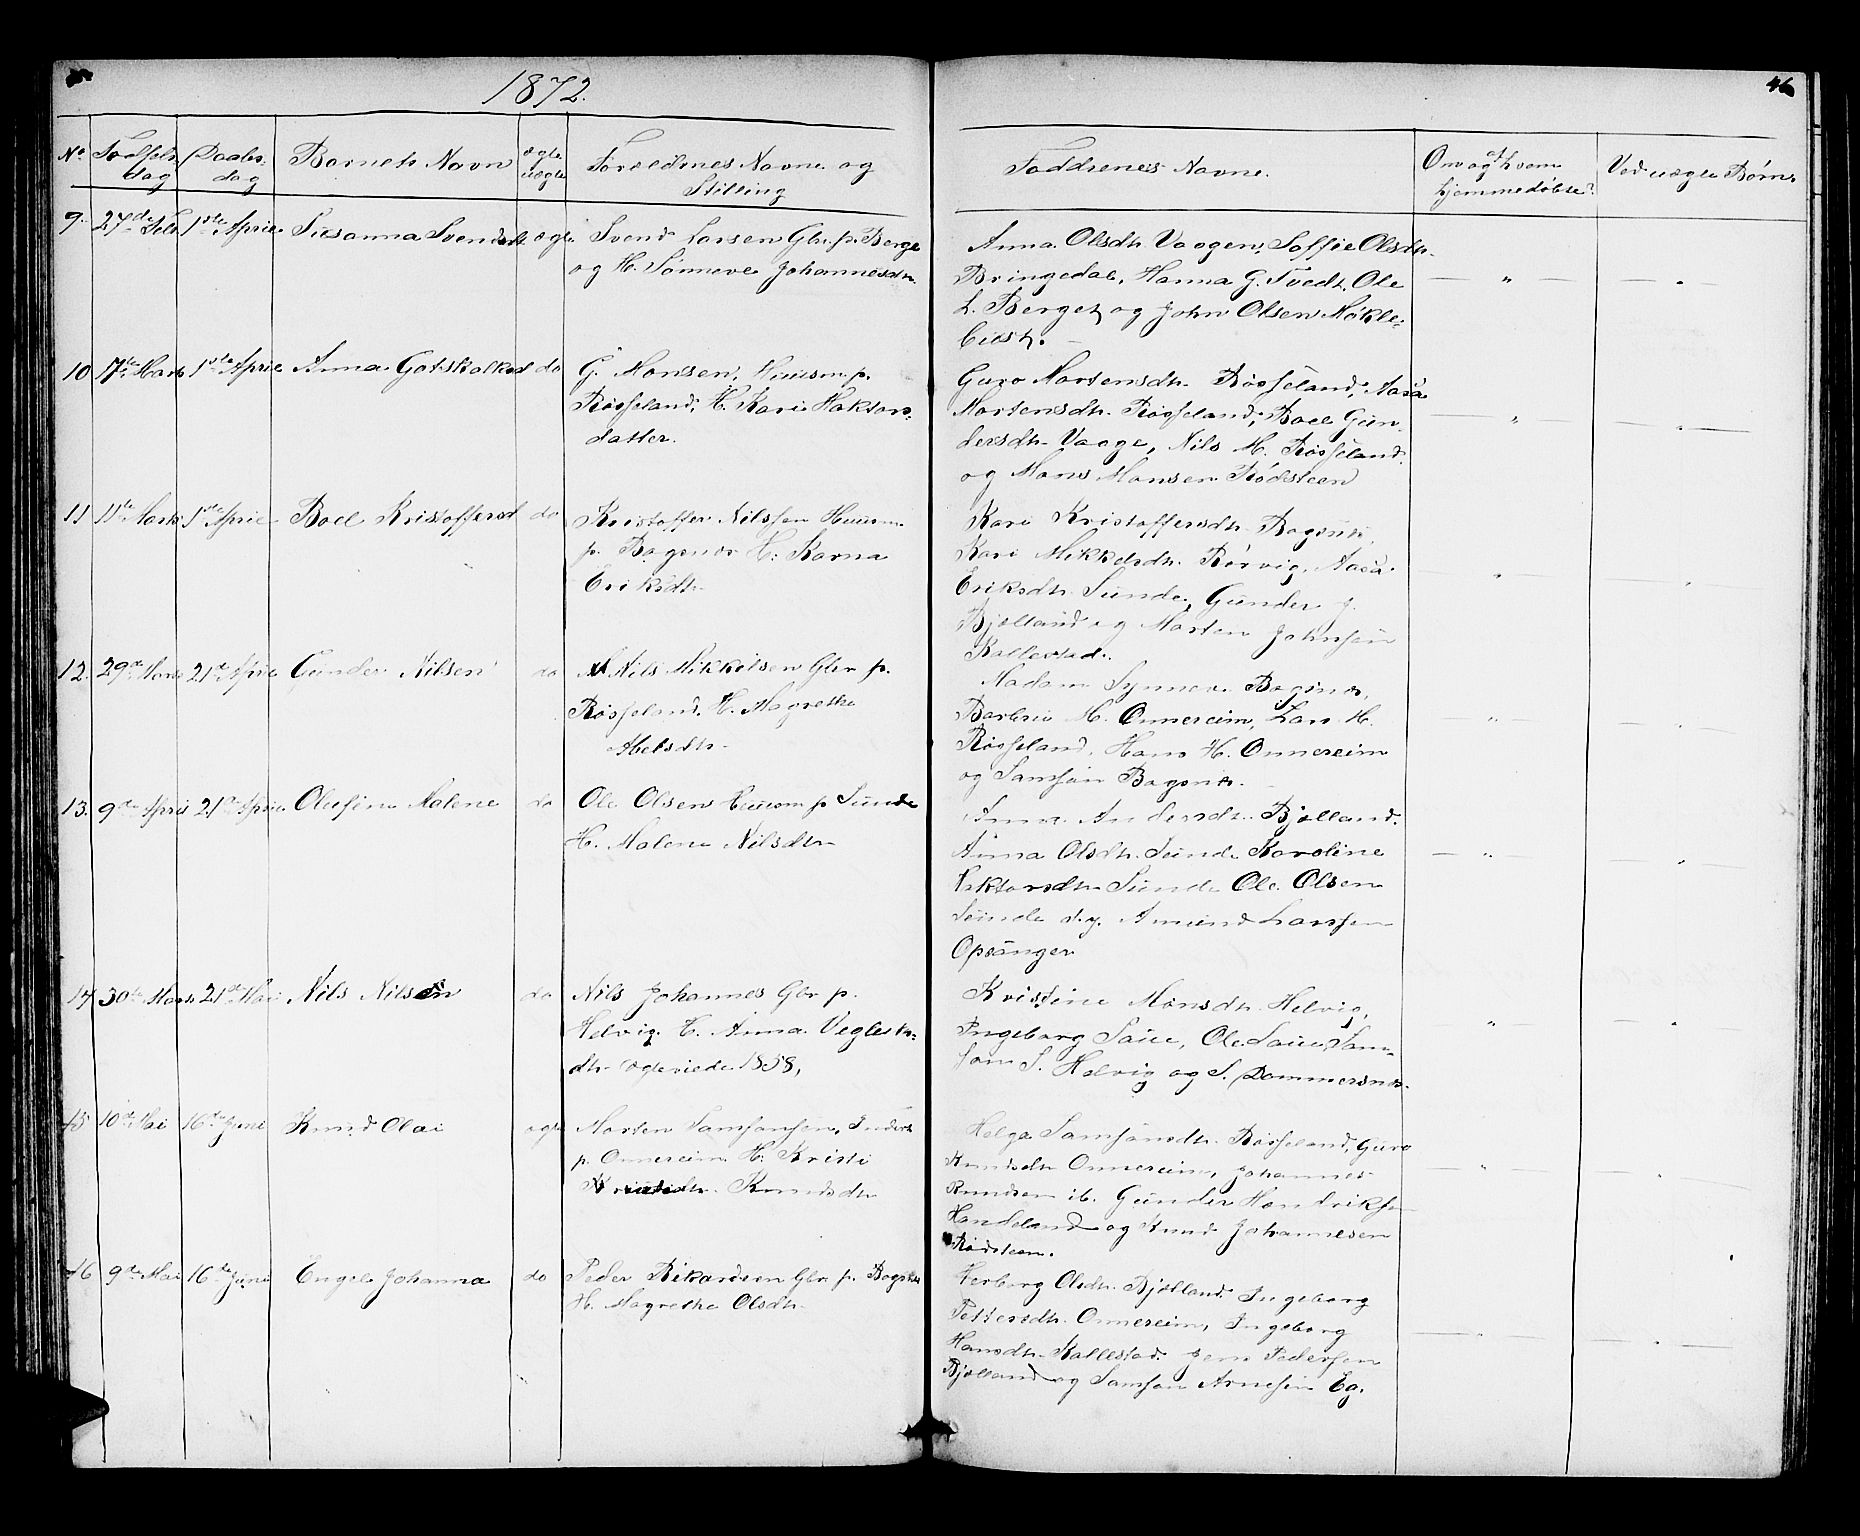 1872.
46
No Fødsels Daabs- Barnets Navn ægte Forældrenes Navne og
dag dag uægte Stilling
Faddrenes Navne. Om og af hvem Ved uægte Børn
hjemmedøbte?
9. 27de Feb 1ste April Susanna Svendsdt ægte Svend Larsen Gbr. p. Berge
og H. Sønneve Johannesdtr.
Anna Olsdtr. Vaagen, Soffie Olsdtr.
Bringedal, Hanna G. Tvedt, Ole
L. Berge, og John Olsen Mökle-
bust.
10 7de Marts 1ste April Anna Gotskalksd do G. Monsen, Huusm. p.
Røsseland, H. Kari Haktors-
datter.
Guro Mortensdtr. Røsseland, Aasa
Mortensdtr. Røsseland, Boel Gun-
dersdtr. Vaage, Nils M. Røsseland
og Mons Monsen Rødsteen
11 11te Marts 1ste April Boel Kristoffersd do Kristoffer Nilssen Huusm.
p. Bogsnes H. Karna
Eriksdtr.
Kari Kristoffersdtr. Bogsnes,
Kari Mikkelsdtr. Rørvig, Aasa
Eriksdtr. Sunde, Gunder J.
Bjølland og Morten Johnsen
Kallestad.
12. 29de Marts 21de April Gunder Nilsen do Nils Mikkelsen Gbr p.
Røsseland. H. Magrethe
Abelsdtr.
Madam Synneve Bogsnes,
Barbru M. Onnereim, Lars H.
Røsseland, Hans H. Onnereim
og Samson Bogsnes.
13. 9de April 21de April Olufine Malene do Ole Olsen Huusm p Sunde
H. Malene Nilsdtr
Anna Andersdtr. Bjølland.
Anna Olsdtr. Sunde Karoline
Viktorsdtr. Sunde Ole Olsen
Sunde og Amund Larssen
Opsanger
14 30te Marts 21de Mai Nils Nilsen do Nils Johannes Gbr p.
Helvig. H. Anna Vegleiks-
dtr ægteviede 1858,
Kristine Monsdtr. Helvig,
Ingeborg Saue, Ole Saue, Sam-
son S. Helvig og S. Dommersnes.
15 10de Mai 16de Juni Knud Olai ægte Morten Samsonsen, Inderst
p. Onnereim H. Kristi
Knudsdtr
Helga Samsonsdtr. Røsseland, Guro
Knudsdtr Onnereim, Johannes
Knudsen ib. Gunder Hendriksen
Handeland og Knud Johannesen
Rødsteen.
16 9de Mai 16de Juni Engel Johanna do Peder Rikardsen Gbr. p. Bogsnes
H. Magrethe Olsdtr.
Herborg Olsdtr. Bjølland Ingeborg
Pettersdtr. Onnereim, Ingeborg
Hansdtr. Kallestad. Jens Pedersen
Bjølland og Samson Arnesen Eg.